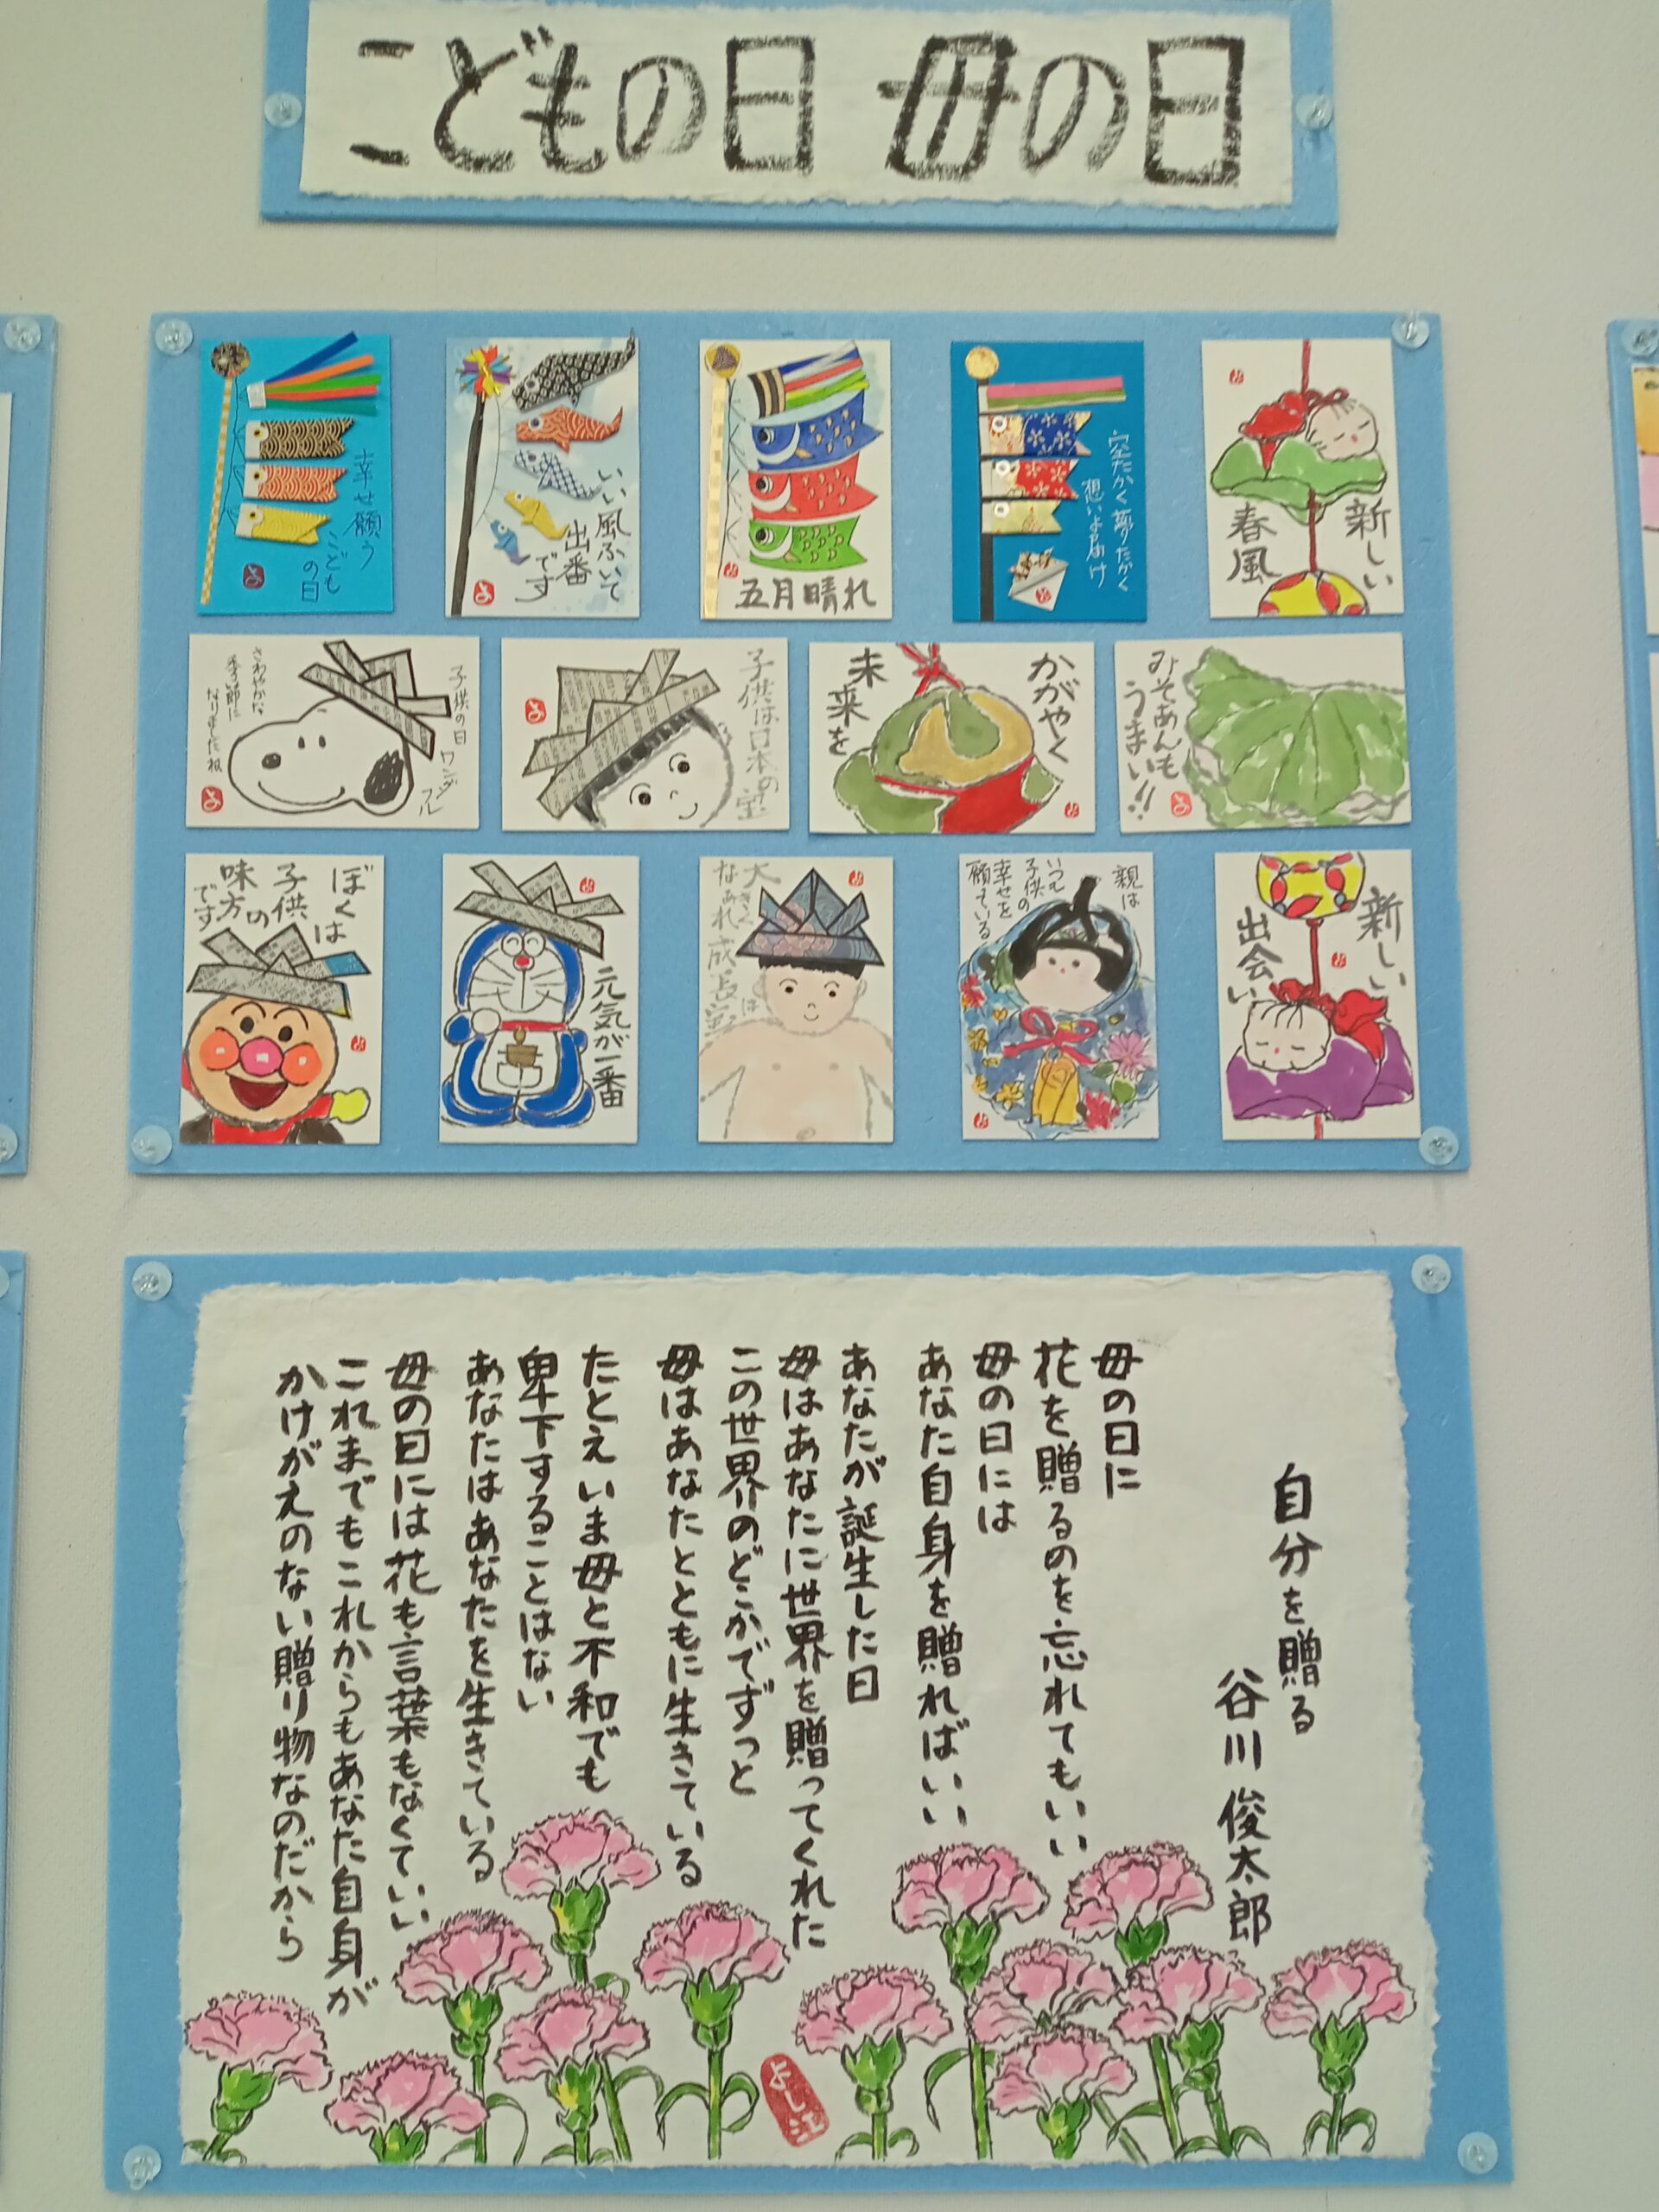 こどもの日 母の日
幸せ願う
こども
の日
いい風ふいて
出番
です
五月晴れ
空たかく夢たかく
想いよ届け
新しい
春風
子供の日 ワンダフル
さわやかな
季節に
なりましたね
子供は日本の宝
かがやく
未来を
みそあんも
うまい!!
ぼくは
子供の
味方
です
元気が一番
大きく
なあれ成長は宝
親は
いつも
子供の
幸せを
願っている
新しい
出会い
自分を贈る
谷川俊太郎
母の日に
花を贈るのを忘れてもいい
母の日には
あなた自身を贈ればいい
あなたが誕生した日
母はあなたに世界を贈ってくれた
この世界のどこかでずっと
母はあなたとともに生きている
たとえいま母と不和でも
卑下することはない
あなたはあなたを生きている
母の日には花も言葉もなくていい
これまでもこれからもあなた自身が
かけがえのない贈り物なのだから
よし江